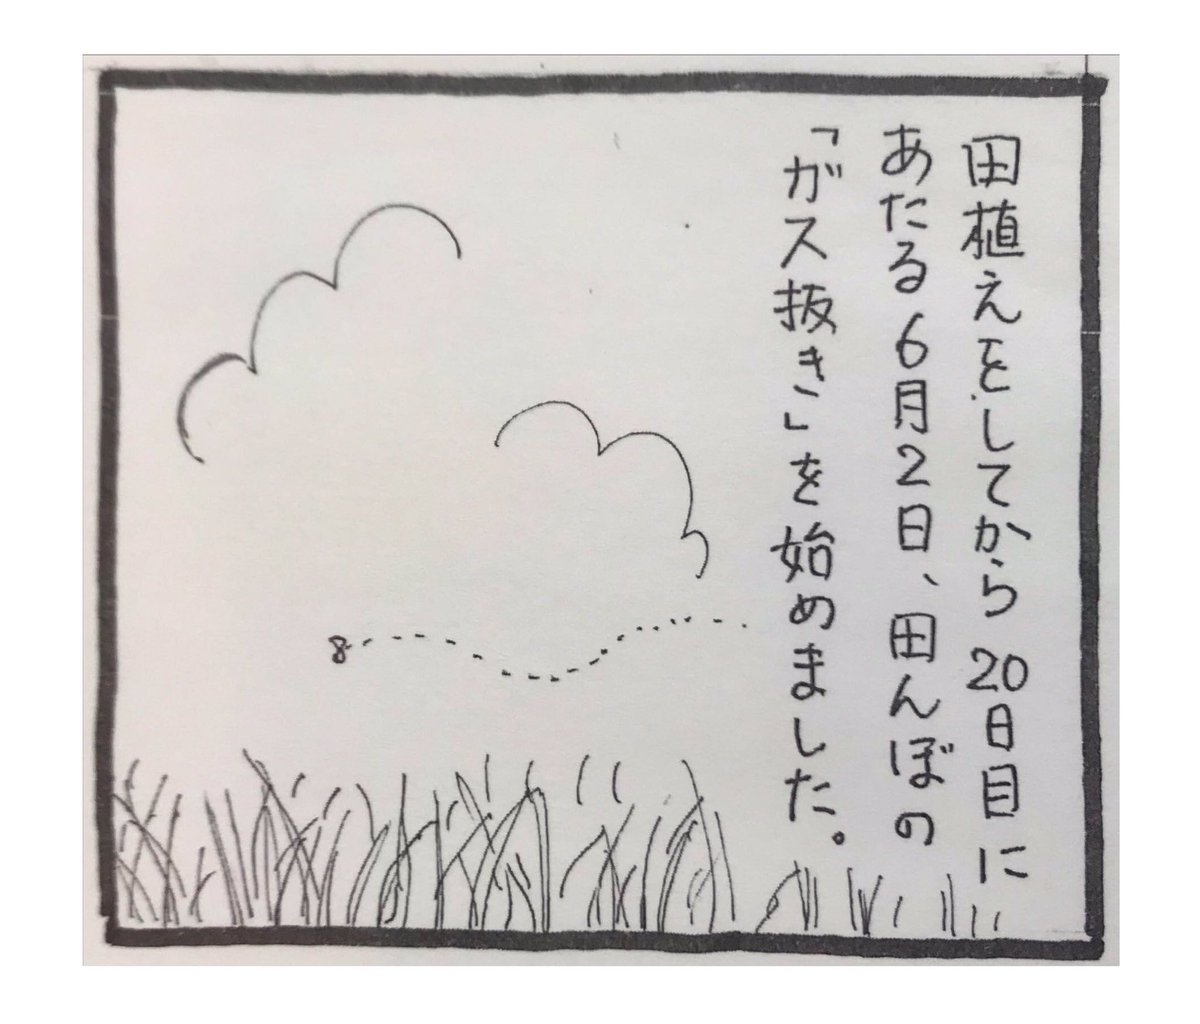 田植えをしてから20日目に
あたる6月2日、田んぼの
「ガス抜き」を始めました。